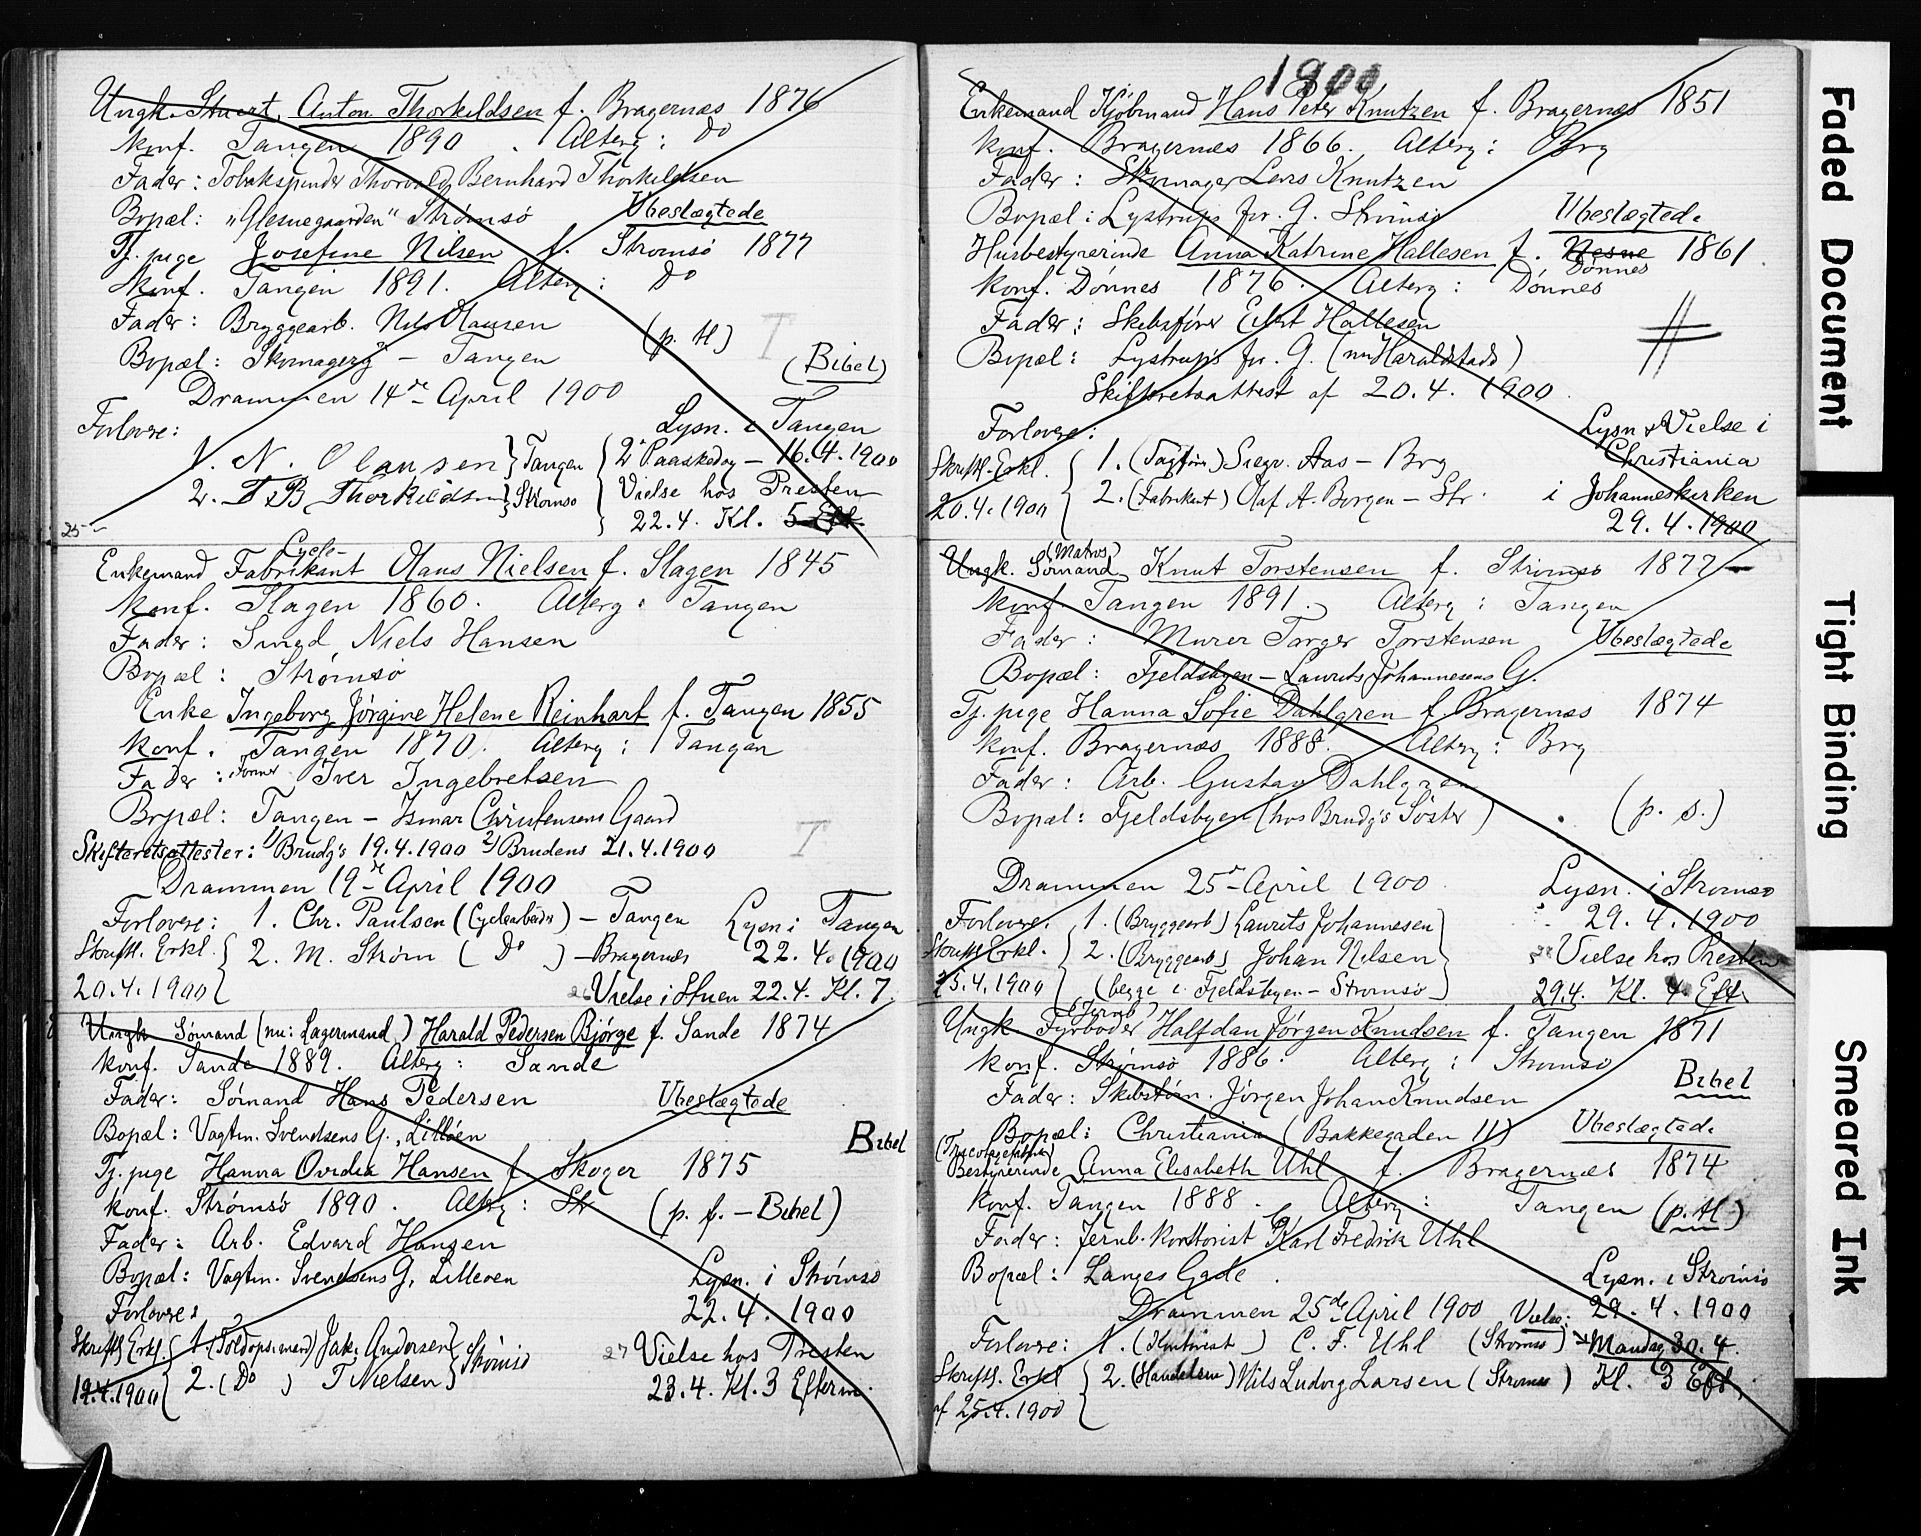 Ungk. Stuert. Anton Thorkildsen f. Bragernæs 1876
konf. Tangen 1890. Alterg: Do
Fader: Tobakspinder Thorvald Bernhard Thorkildsen
Bopæl: "Glesnegaarden" Strømsø Ubeslægtede
Tj. pige Josefine Nilsen f. Strømsø 1877
konf. Tangen 1891. Alterg: Do
Fader: Bryggearb. Nils Olausen (p. H) T
Bopæl: Skomagerg - Tangen (Bibel)
Drammen 14de April 1900
Forlovere: Lysn. i Tangen
1. N. Olausen } Tangen { 2 Paaskedag - 16.4.1900
2. T B Thorkildsen } Strømsø Vielse hos Presten
22.4. Kl. 5 Eft.
25
Cycle-
Enkemand Fabrikant Olaus Nielsen f. Slagen 1845
konf. Slagen 1860. Alterg: Tangen
Fader: Smed Niels Hansen
Bopæl: Strømsø
Enke Ingeborg Jörgine Helene Reinhart f. Tangen 1855
konf. Tangen 1870. Alterg: Tangen
Fader: Iver Ingebretsen
Bopæl: Tangen - Ismar Christensens Gaard
Skifteretsattester: 1) Brudg's 19.4.1900 2) Brudens 21.4.1900 T
Drammen 19de April 1900
Forlovere: 1. Chr. Paulsen (Cyclearbeider) - Tangen Lysn i Tangen
Skriftl. Erkl. { 2. M. Strøm ( Do ) - Bragernæs 22.4.1900
20.4.1900 { 26 Vielse i Stuen 22.4. Kl. 7.
Ungk Sømand (nu: Lagermand) Harald Pedersen Bjørge f. Sande 1874
konf. Sande 1889. Alterg: Sande
Fader: Sømand Hans Pedersen Ubeslægtede
Bopæl: Vagtm. Svendsens G., Lilløen
Bibel
Tj. pige Hanna Ovidia Hansen f Skoger 1875
konf. Strømsø 1890. Alterg: Str
(p. f. - Bibel)
Fader: Arb. Edvard Hansen
Bopæl: Vagtm. Svendsens G, Lilleøen Lysn. i Strømsø
Forlovere 22.4.1900
Skriftl Erkl. { 1. (Toldopsmed) Jak. Andersen } Strømsø 27 Vielse hos Presten
19.4.1900 { 2. (Do ) T Nielsen } 23.4. Kl. 3 Efterm.
1900
Enkemand Kjøbmand Hans Peter Knutzen f. Bragernæs 1851
konf. Bragernæs 1866. Alterg: Brg
Fader: Skomager Lars Knutzen
Bopæl: Lystrups for. G. Strømsø Ubeslægtede
Husbestyrerinde Anna Katrine Hallesen f. Nesne 1861.
Dønnes
konf. Dønnes 1876. Alterg: Dønnes
Fader: Skibsfører Eilert Hallesen
Bopæl: Lystrups for. G. (nu Haraldstads)
Skifteretsattest af 20.4.1900.
Forlovere: Lysn & Vielse i
Skriftl. Erkl. { 1. Sigv. Aas - Brg Christiania
20.4.1900 { 2. (Fabrikant) Olaf A. Borgen - Str. i Johanneskirken
29.4.1900
(Matros)
Ungk. Sømand Knut Torstensen f. Strømsø 1877
konf. Tangen 1891. Alterg: Tangen
Fader: Murer Torger Torstensen Ubeslægtede
Bopæl: Fjeldsbyen - Laurits Johannesens G.
Tj. pige Hanna Sofie Dahlgren f Bragernæs 1874
konf. Bragernæs 1888. Alterg: Brg
Fader: Arb. Gustav Dahlgren
Bopæl: Fjeldsbyen (hos Brudg's Søster) (p. s.)
Drammen 25de April 1900 Lysn. i Strømsø
Forlovere. 1. (Bryggearb) Laurits Johannesen 29.4.1900
Skriftl Erkl. { 2. (Bryggearb) Johan Nilsen Vielse hos Presten
25.4.1900 { (begge i Fjeldsbyen - Strømsø) 29.4. Kl. 4. Eft.
(Jernb)
Ungk Fyrbøder Halfdan Jörgen Knudsen f. Tangen 1871
konf. Strømsø 1886. Alterg: Strømsø
Bibel
Fader: Skibstøm. Jörgen Johan Knudsen
Bopæl: Christiania (Bakkegaden 11) Ubeslægtede
Bestyrerinde Anna Elisabeth Uhl f. Bragernæs 1874
konf. Tangen 1888. Alterg: Tangen (p. H)
Fader: Jernb. kontorist Karl Fredrik Uhl
Bopæl: Langes Gade. Lysn. i Strømsø
Drammen 25de April 1900 29.4.1900
Vielse:
Forlovere: 1. (Kontorist) C. F. Uhl (Strømsø) Mandag 30.4.
Skriftl. Erkl { 2. Nils Ludvig Larsen (Strømsø) Kl. 3 Eft,
af 25.4.1900 {
Faded Document
Tight Binding
Smeared Ink